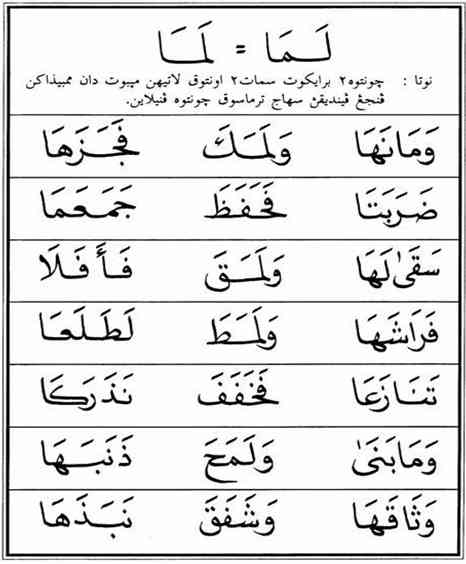 لَـمَـا = لَمَا
نوتا : چونتوه٢ برايكوت سمات٢ اونتوق لاتيهن مڽبوت دان ممبيذاكن
ڤنجڠ ڤينديقڽ سهاج ترماسوق چونتوه ڤنيلاين.
وَمَانَهَا وَلَمَكَ فَجَزَهَا
ضَرَبَتَا فَحَفَظَ جَمَعَمَا
سَقَىٰ لَهَا وَلَمَقَ فَأَفَلَا
فَرَاشَهَا وَلَمَطَ لَطَلَعَا
تَنَازَعَا فَخَفَفَ نَذَرَكَا
وَمَابَنَىٰ وَلَمَحَ ذَنَبَهَا
وَثَاقَهَا وَشَفَقَ نَبَذَهَا